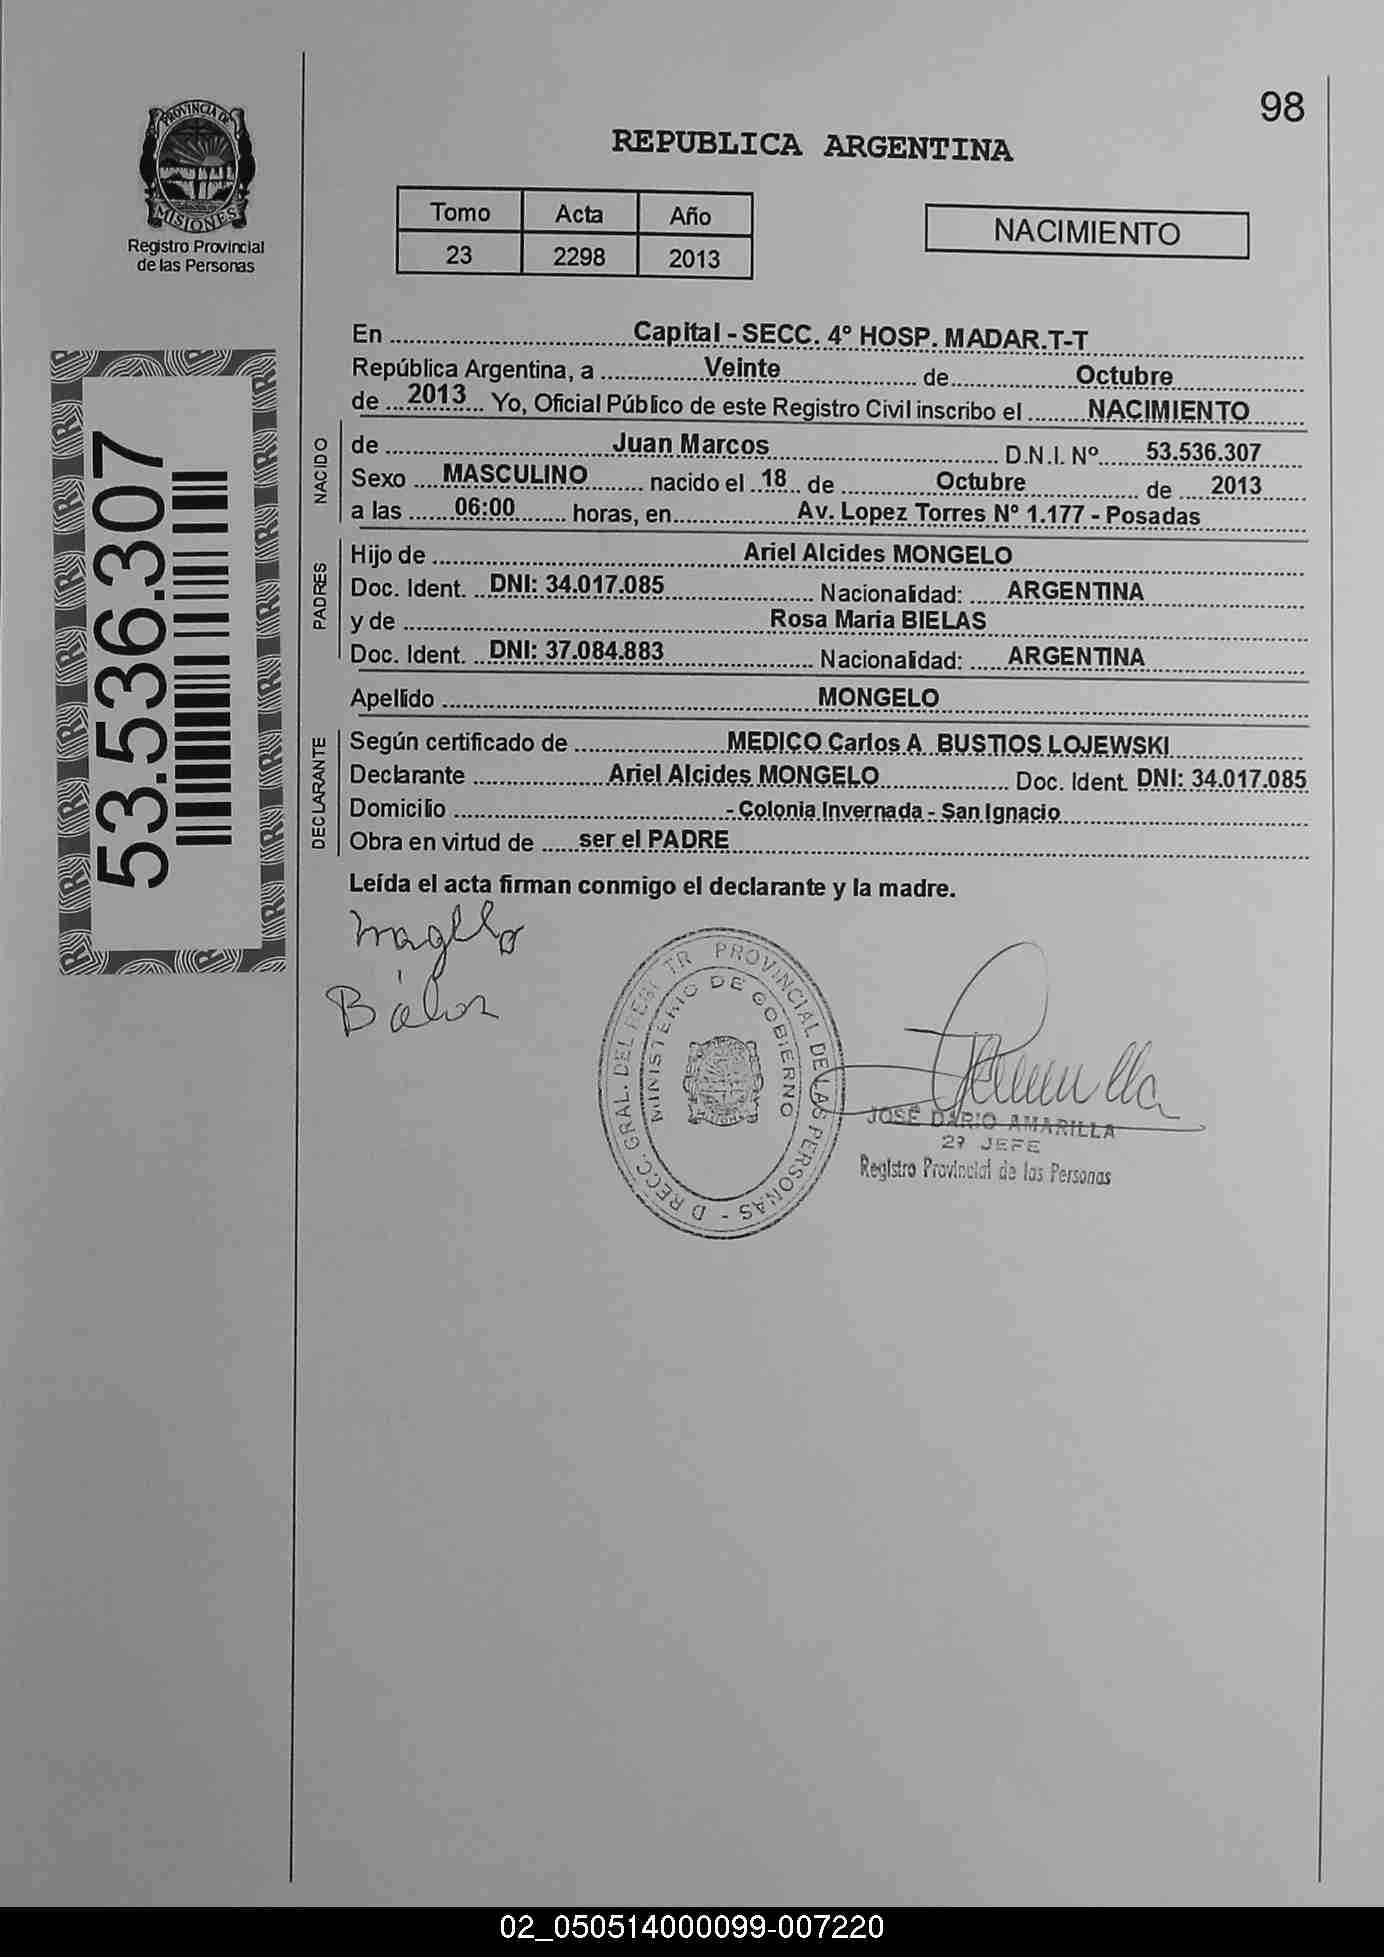 98
PROVINCIA DE
MISIONES
Registro Provincial
de las Personas
REPUBLICA ARGENTINA
Tomo Acta Año
23 2298 2013
NACIMIENTO
53.536.307
En Capital - SECC. 4º HOSP. MADAR.T-T
República Argentina, a Veinte de Octubre
de 2013 Yo, Oficial Público de este Registro Civil inscribo el NACIMIENTO
NACIDO
de Juan Marcos D.N.I. Nº 53.536.307
Sexo MASCULINO nacido el 18 de Octubre de 2013
a las 06:00 horas, en Av. Lopez Torres Nº 1.177 - Posadas
PADRES
Hijo de Ariel Alcides MONGELO
Doc. Ident. DNI: 34.017.085 Nacionalidad: ARGENTINA
y de Rosa Maria BIELAS
Doc. Ident. DNI: 37.084.883 Nacionalidad: ARGENTINA
Apellido MONGELO
DECLARANTE
Según certificado de MEDICO Carlos A BUSTIOS LOJEWSKI
Declarante Ariel Alcides MONGELO Doc. Ident. DNI: 34.017.085
Domicilio - Colonia Invernada - San Ignacio
Obra en virtud de ser el PADRE
Leída el acta firman conmigo el declarante y la madre.
PROVINCIAL DE LAS PERSONAS - D RECC. GRAL. DEL
MINISTERIO DE GOBIERNO
MISIONES
JOSÉ DARIO AMARILLA
2º JEFE
Registro Provincial de las Personas
02_050514000099-007220